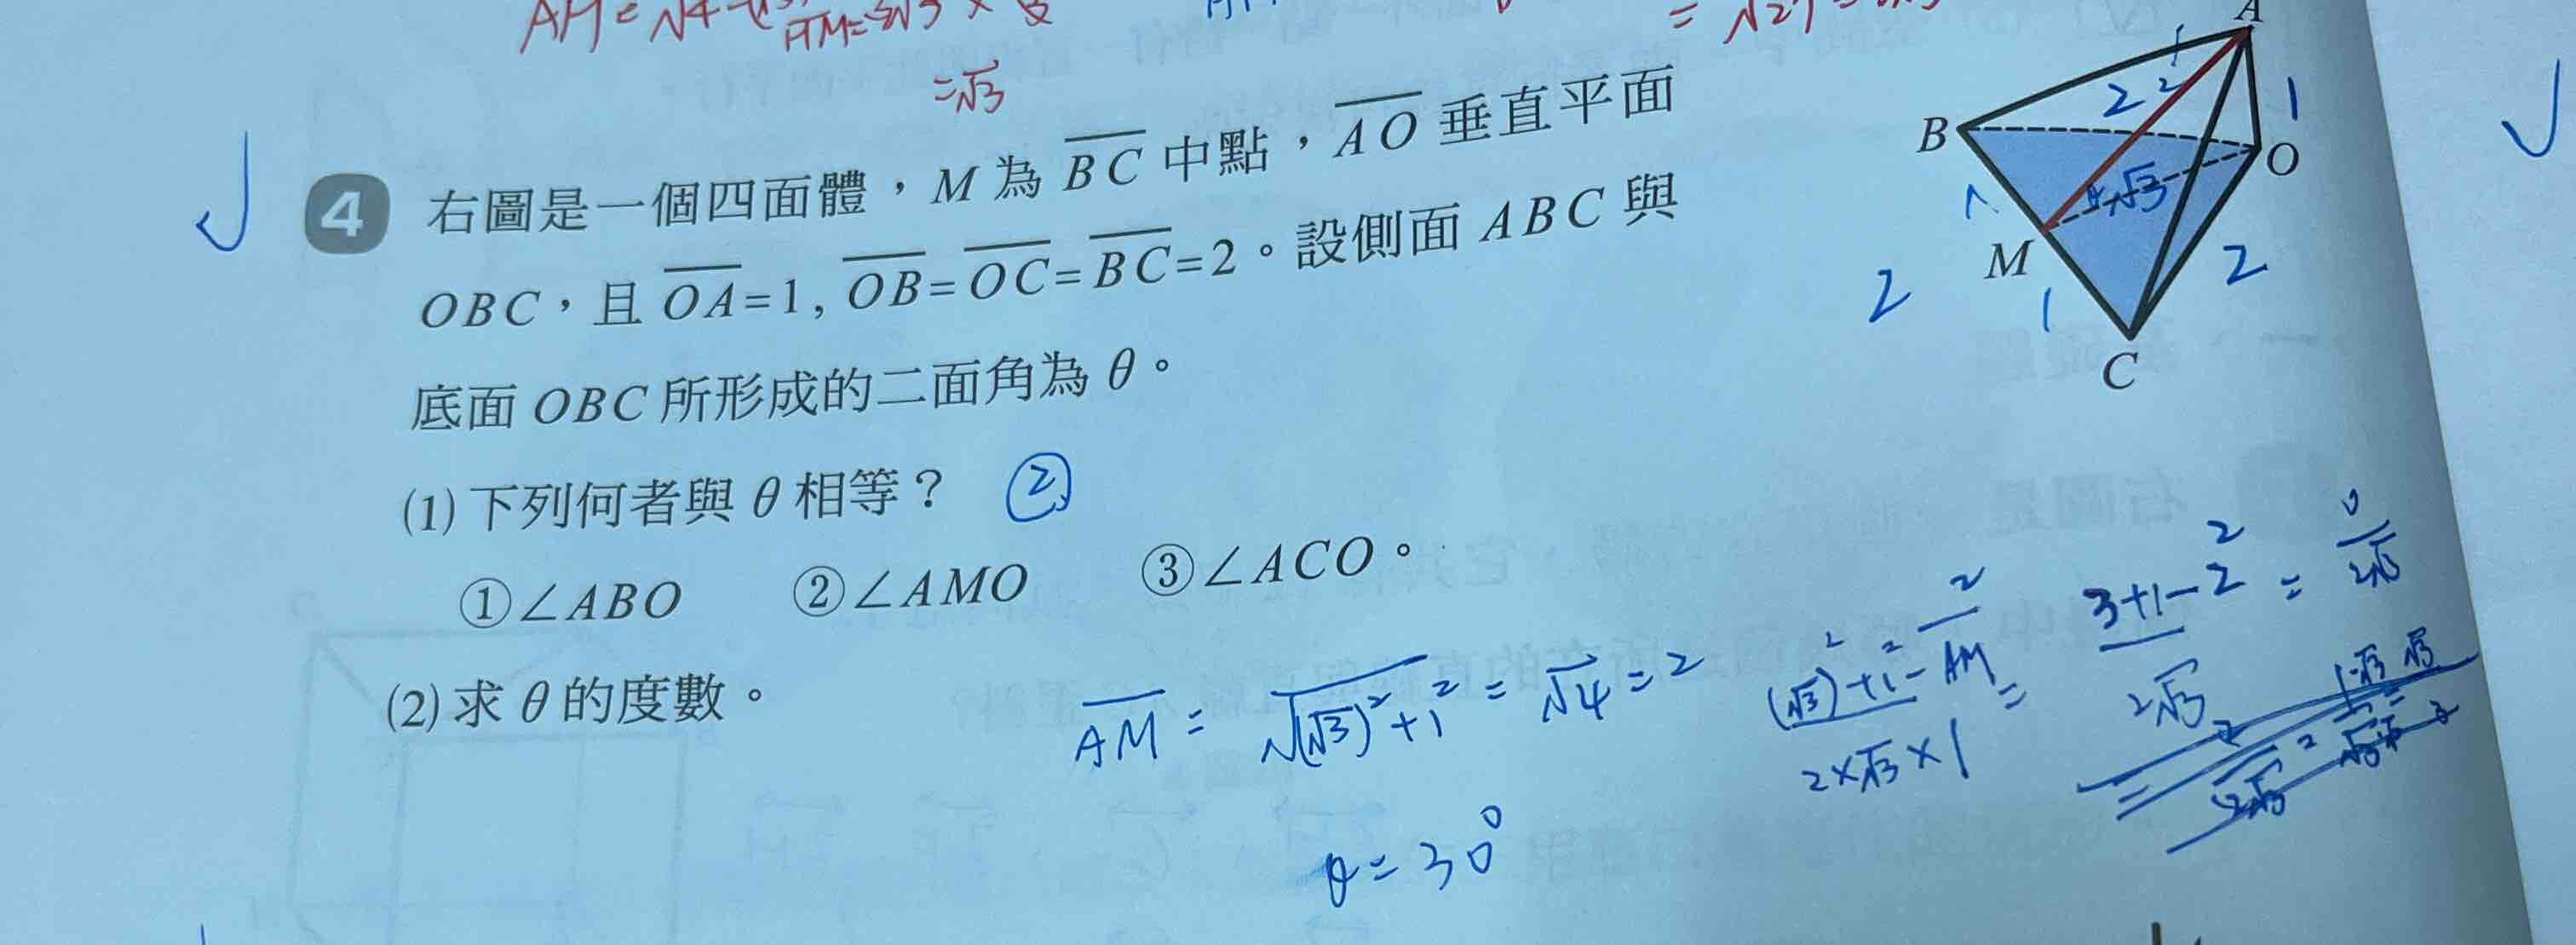 =√3
4 右圖是一個四面體，M 為 BC 中點，AO 垂直平面
OBC，且 OA=1, OB=OC=BC=2。設側面 ABC 與
底面 OBC 所形成的二面角為 θ。
(1) 下列何者與 θ 相等？ ②
①∠ABO ②∠AMO ③∠ACO。
(2) 求 θ 的度數。
AM = √(√3)²+1² = √4 = 2
(√3)²+1²-AM² =
2×√3×1
3+1-2²
2√3
= 0
2√3
θ=30°
A
B
O
M
C
2
1
√3
2
1
2